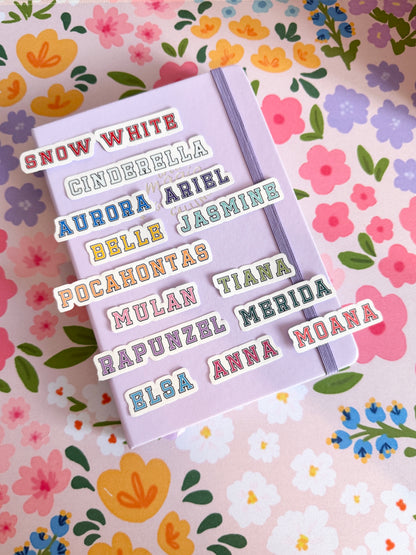 SNOW WHITE
CINDERELLA
AURORA ARIEL
BELLE JASMINE
POCAHONTAS
MULAN TIANA
RAPUNZEL MERIDA
ELSA ANNA MOANA